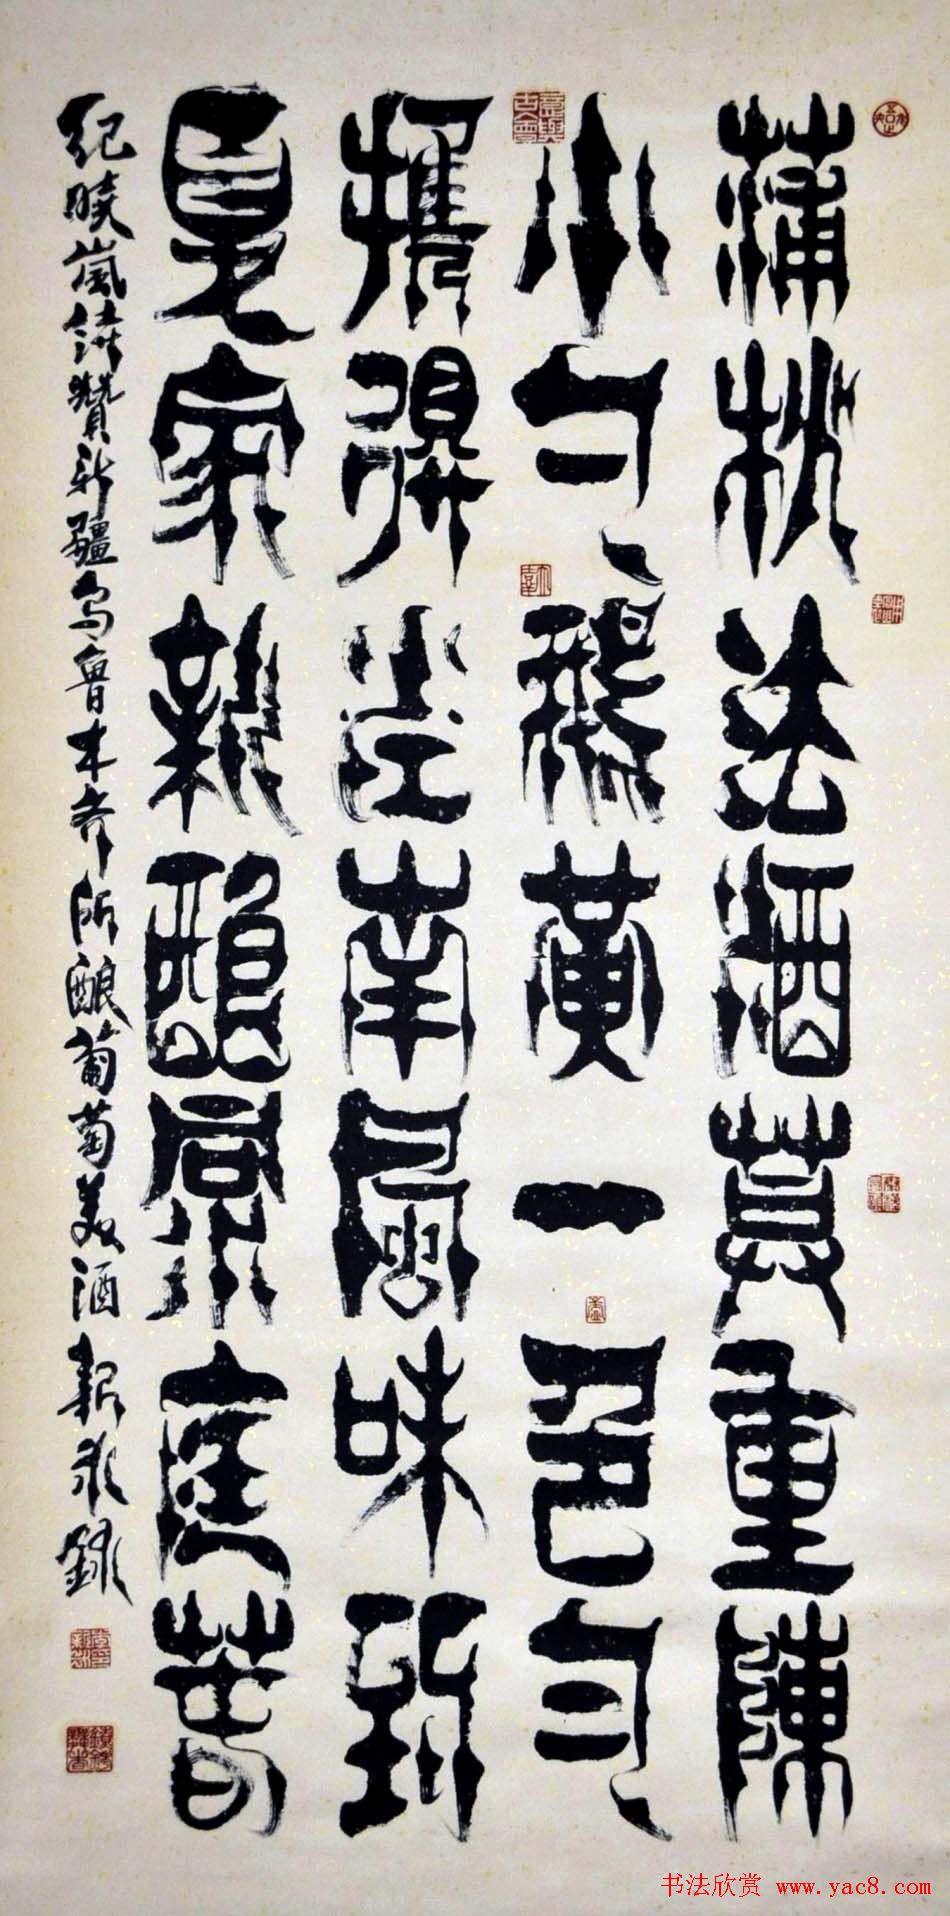 蒲桃法酒莫重陳
小勺鵝黃一色勻
攜得江南風味到
夏家新釀洞庭春
紀曉嵐詩贊新疆烏魯木齊所酿葡萄美酒 靳永錄
书法欣赏 www.yac8.com